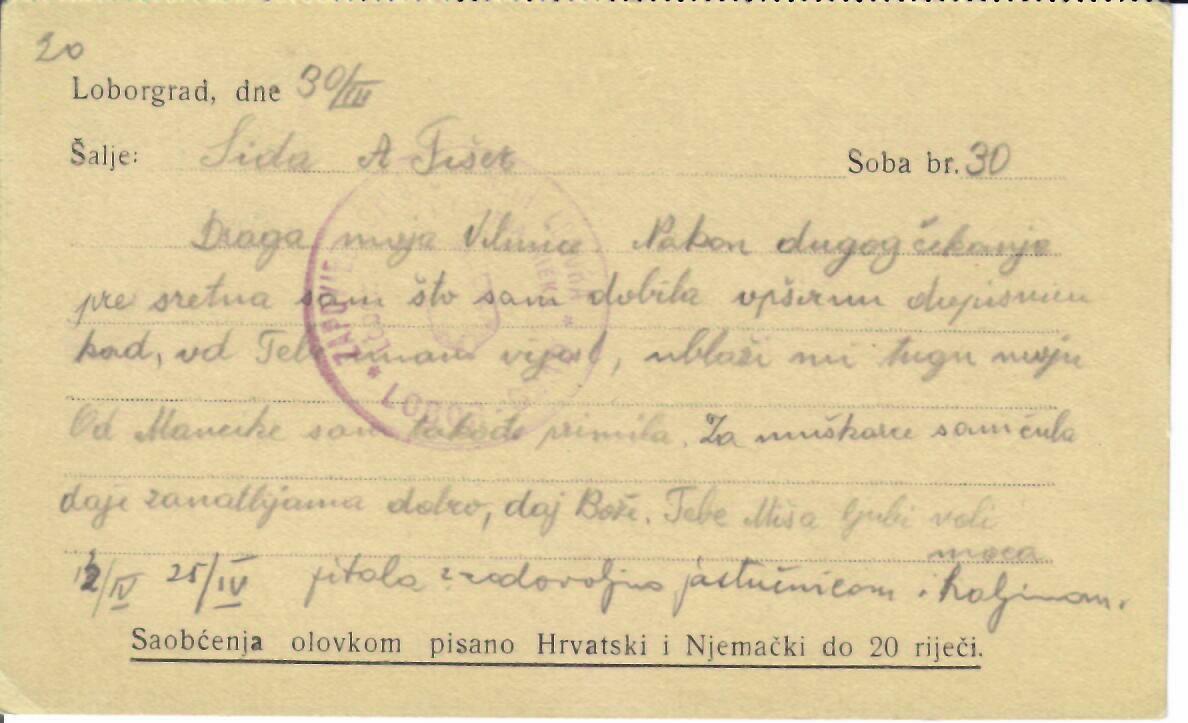 20
Loborgrad, dne 30/III
Šalje: Sida A Fišer Soba br. 30
Draga moja Vilmice Nakon dugog čekanja
pre sretna sam što sam dobila opširnu dopisnicu
kad, od Tebe imam vijest, ublaži mi tugu moju
Od Mancike sam takođe primila. Za muškarce sam čula
daje zanatlijama dobro, daj Bože. Tebe Miša ljubi voli
12/IV 25/IV pitala zadovoljna jastučnicom i haljinom.
Saobćenja olovkom pisano Hrvatski i Njemački do 20 riječi.